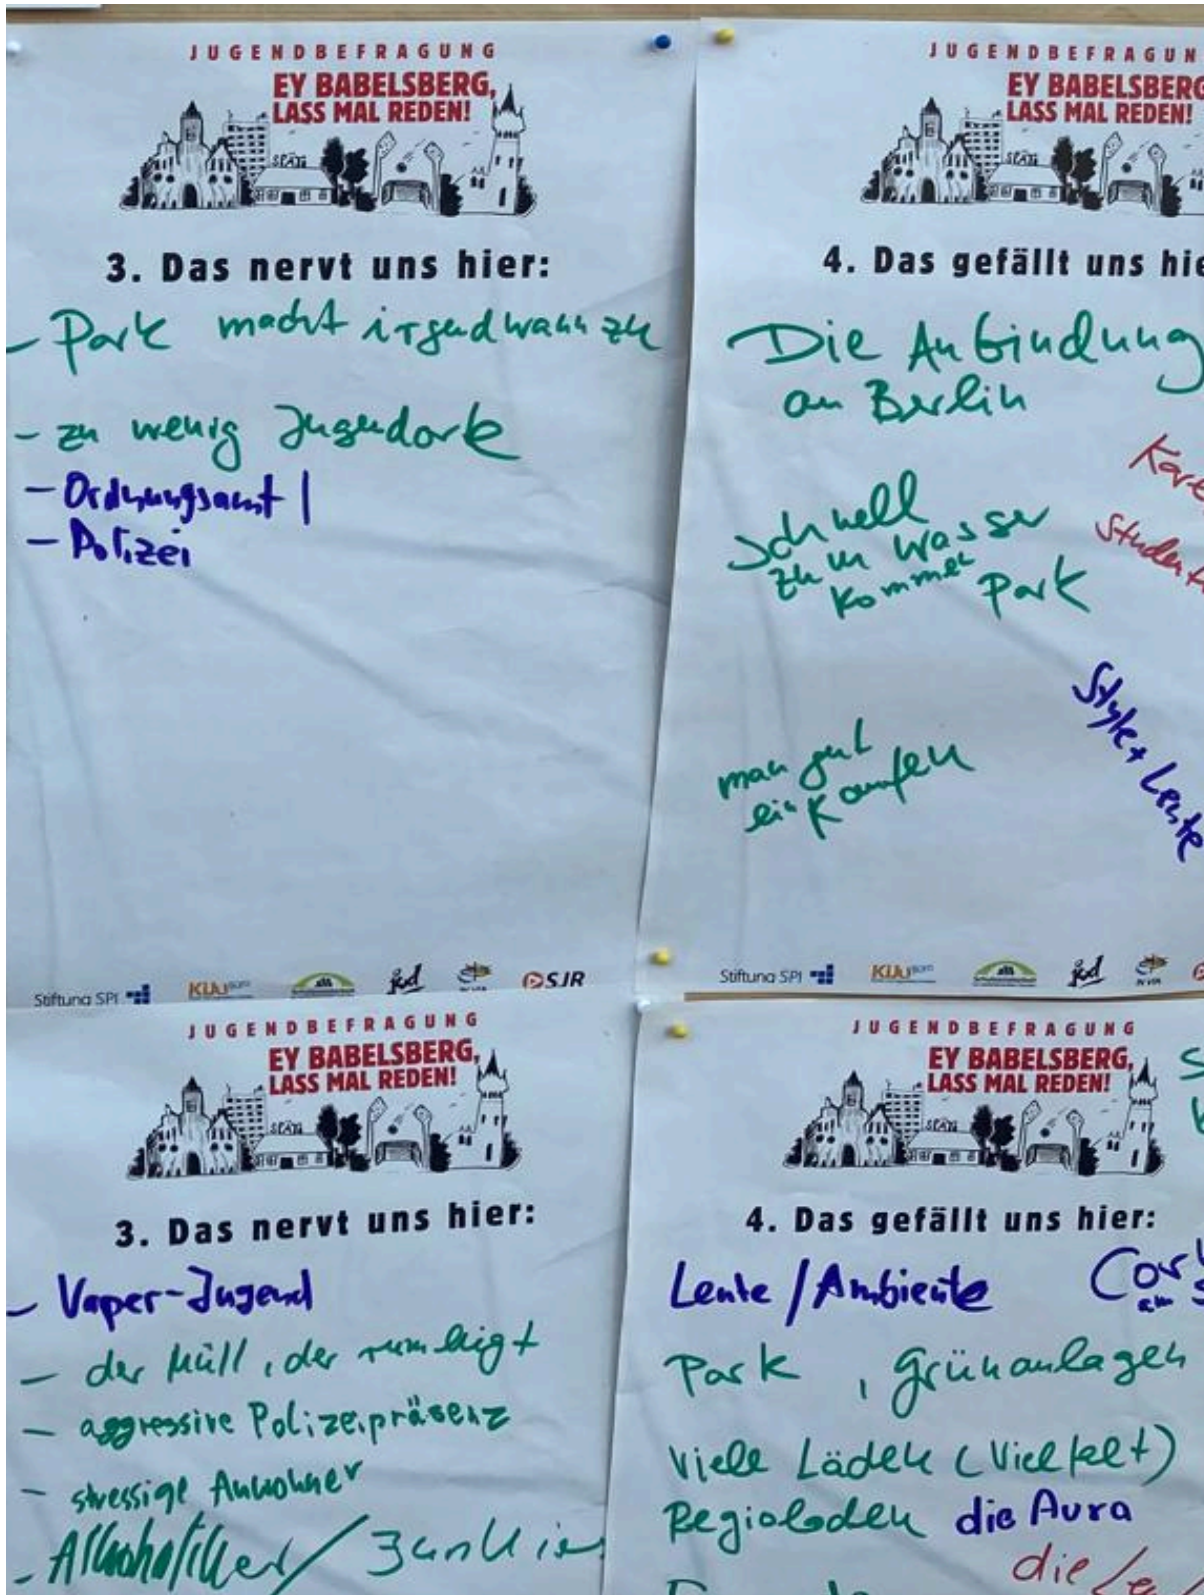 JUGENDBEFRAGUNG
EY BABELSBERG,
LASS MAL REDEN!
SPÄTI
3. Das nervt uns hier:
- Park macht irgendwann zu
- zu wenig Jugendorte
- Ordnungsamt
- Polizei
Stiftung SPI
KIJU BÜRO
jcd
IN VIA
SJR
JUGENDBEFRAGUN
EY BABELSBERG
LASS MAL REDEN!
SPÄTI
4. Das gefällt uns hie
Die Anbindung
an Berlin
Kare
Student
Schnell
zum Wasser
kommen
Park
Style + Leute
man gut
einkaufen
Stiftung SPI
KIJU BÜRO
jcd
IN VIA
JUGENDBEFRAGUNG
EY BABELSBERG,
LASS MAL REDEN!
SPÄTI
3. Das nervt uns hier:
- Vaper-Jugend
- der Müll, der rumliegt
- aggressive Polizeipräsenz
- stressige Anwohner
- Alkoholiker / Junkies
JUGENDBEFRAGUNG
EY BABELSBERG,
LASS MAL REDEN!
SPÄTI
4. Das gefällt uns hier:
Leute / Ambiente
am
Park, Grünanlagen
Viele Läden (Vielfalt)
Regioladen die Aura
die